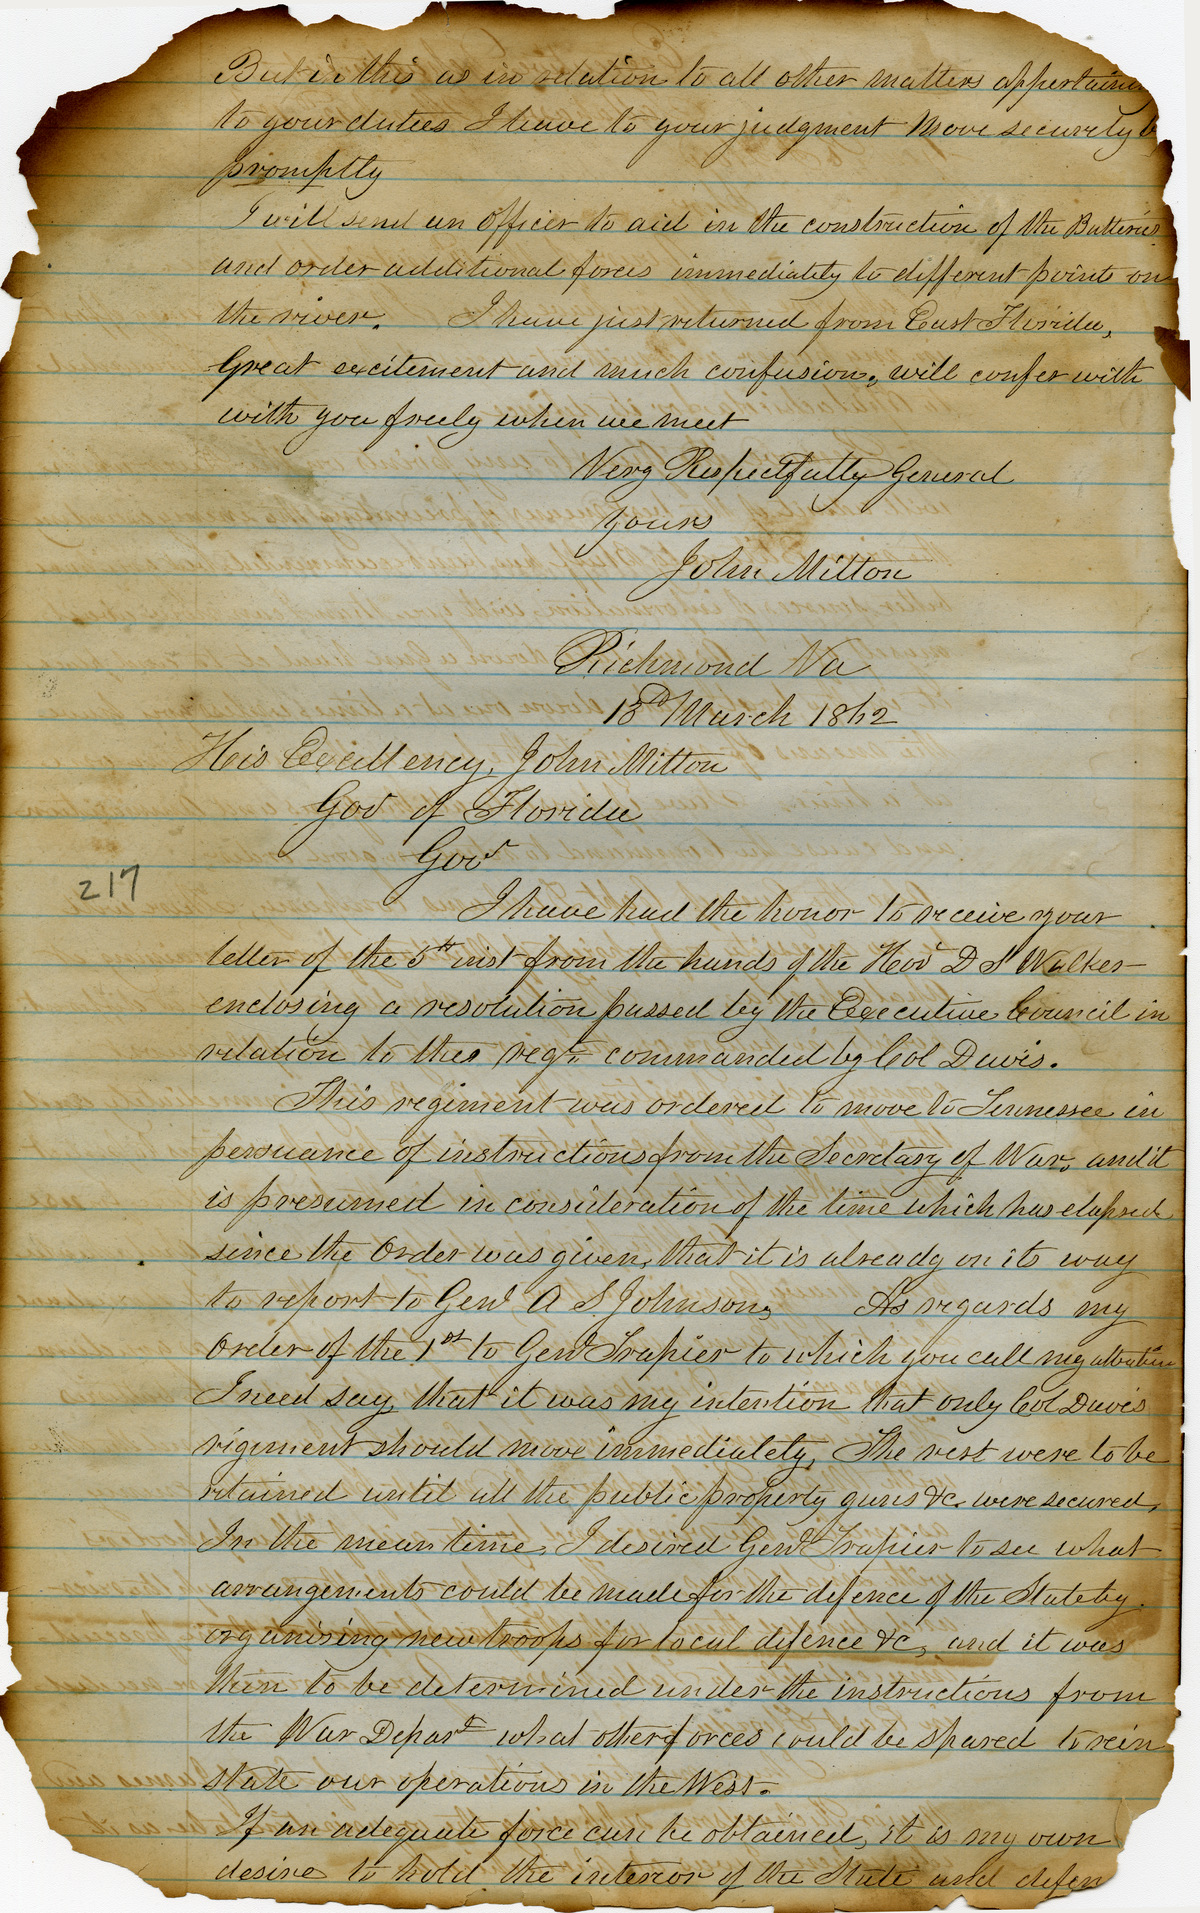 But in this as in relation to all other matters appertaining
to your duties I have to your judgment Move securely &
promptly
I will send an officer to aid in the construction of the Batteries
and order additional forces immediately to different points on
the river. I have just returned from East Florida,
Great excitement and much confusion, will confer with
with you freely when we meet
Very Respectfully General
Yours
John Milton
Richmond Va
13th March 1862
His Excellency, John Milton
Gov of Florida
Govr
217
I have had the honor to receive your
letter of the 5th inst from the hands of the Hon D S Walker
enclosing a resolution passed by the Executive Council in
relation to the regt commanded by Col Davis.
This regiment was ordered to move to Tennessee in
persuance of instructions from the Secretary of War, and it
is presumed in consideration of the time which has elapsed
since the Order was given, that it is already on its way
to report to Genl A S Johnson, As regards my
Order of the 1st to Genl Trapier to which you call my attention
I need say, that it was my intention that only Col Davis
regiment should move immediately, The rest were to be
retained until all the public property guns &c. were secured,
In the mean time, I desired Genl Trapier to see what
arrangements could be made for the defence of the State by
organising new troops for local defence &c, and it was
then to be determined under the instructions from
the War Depart what other forces could be spared to rein
state our operations in the West.
If an adequate force can be obtained, it is my own
desire to hold the interior of the State and defen